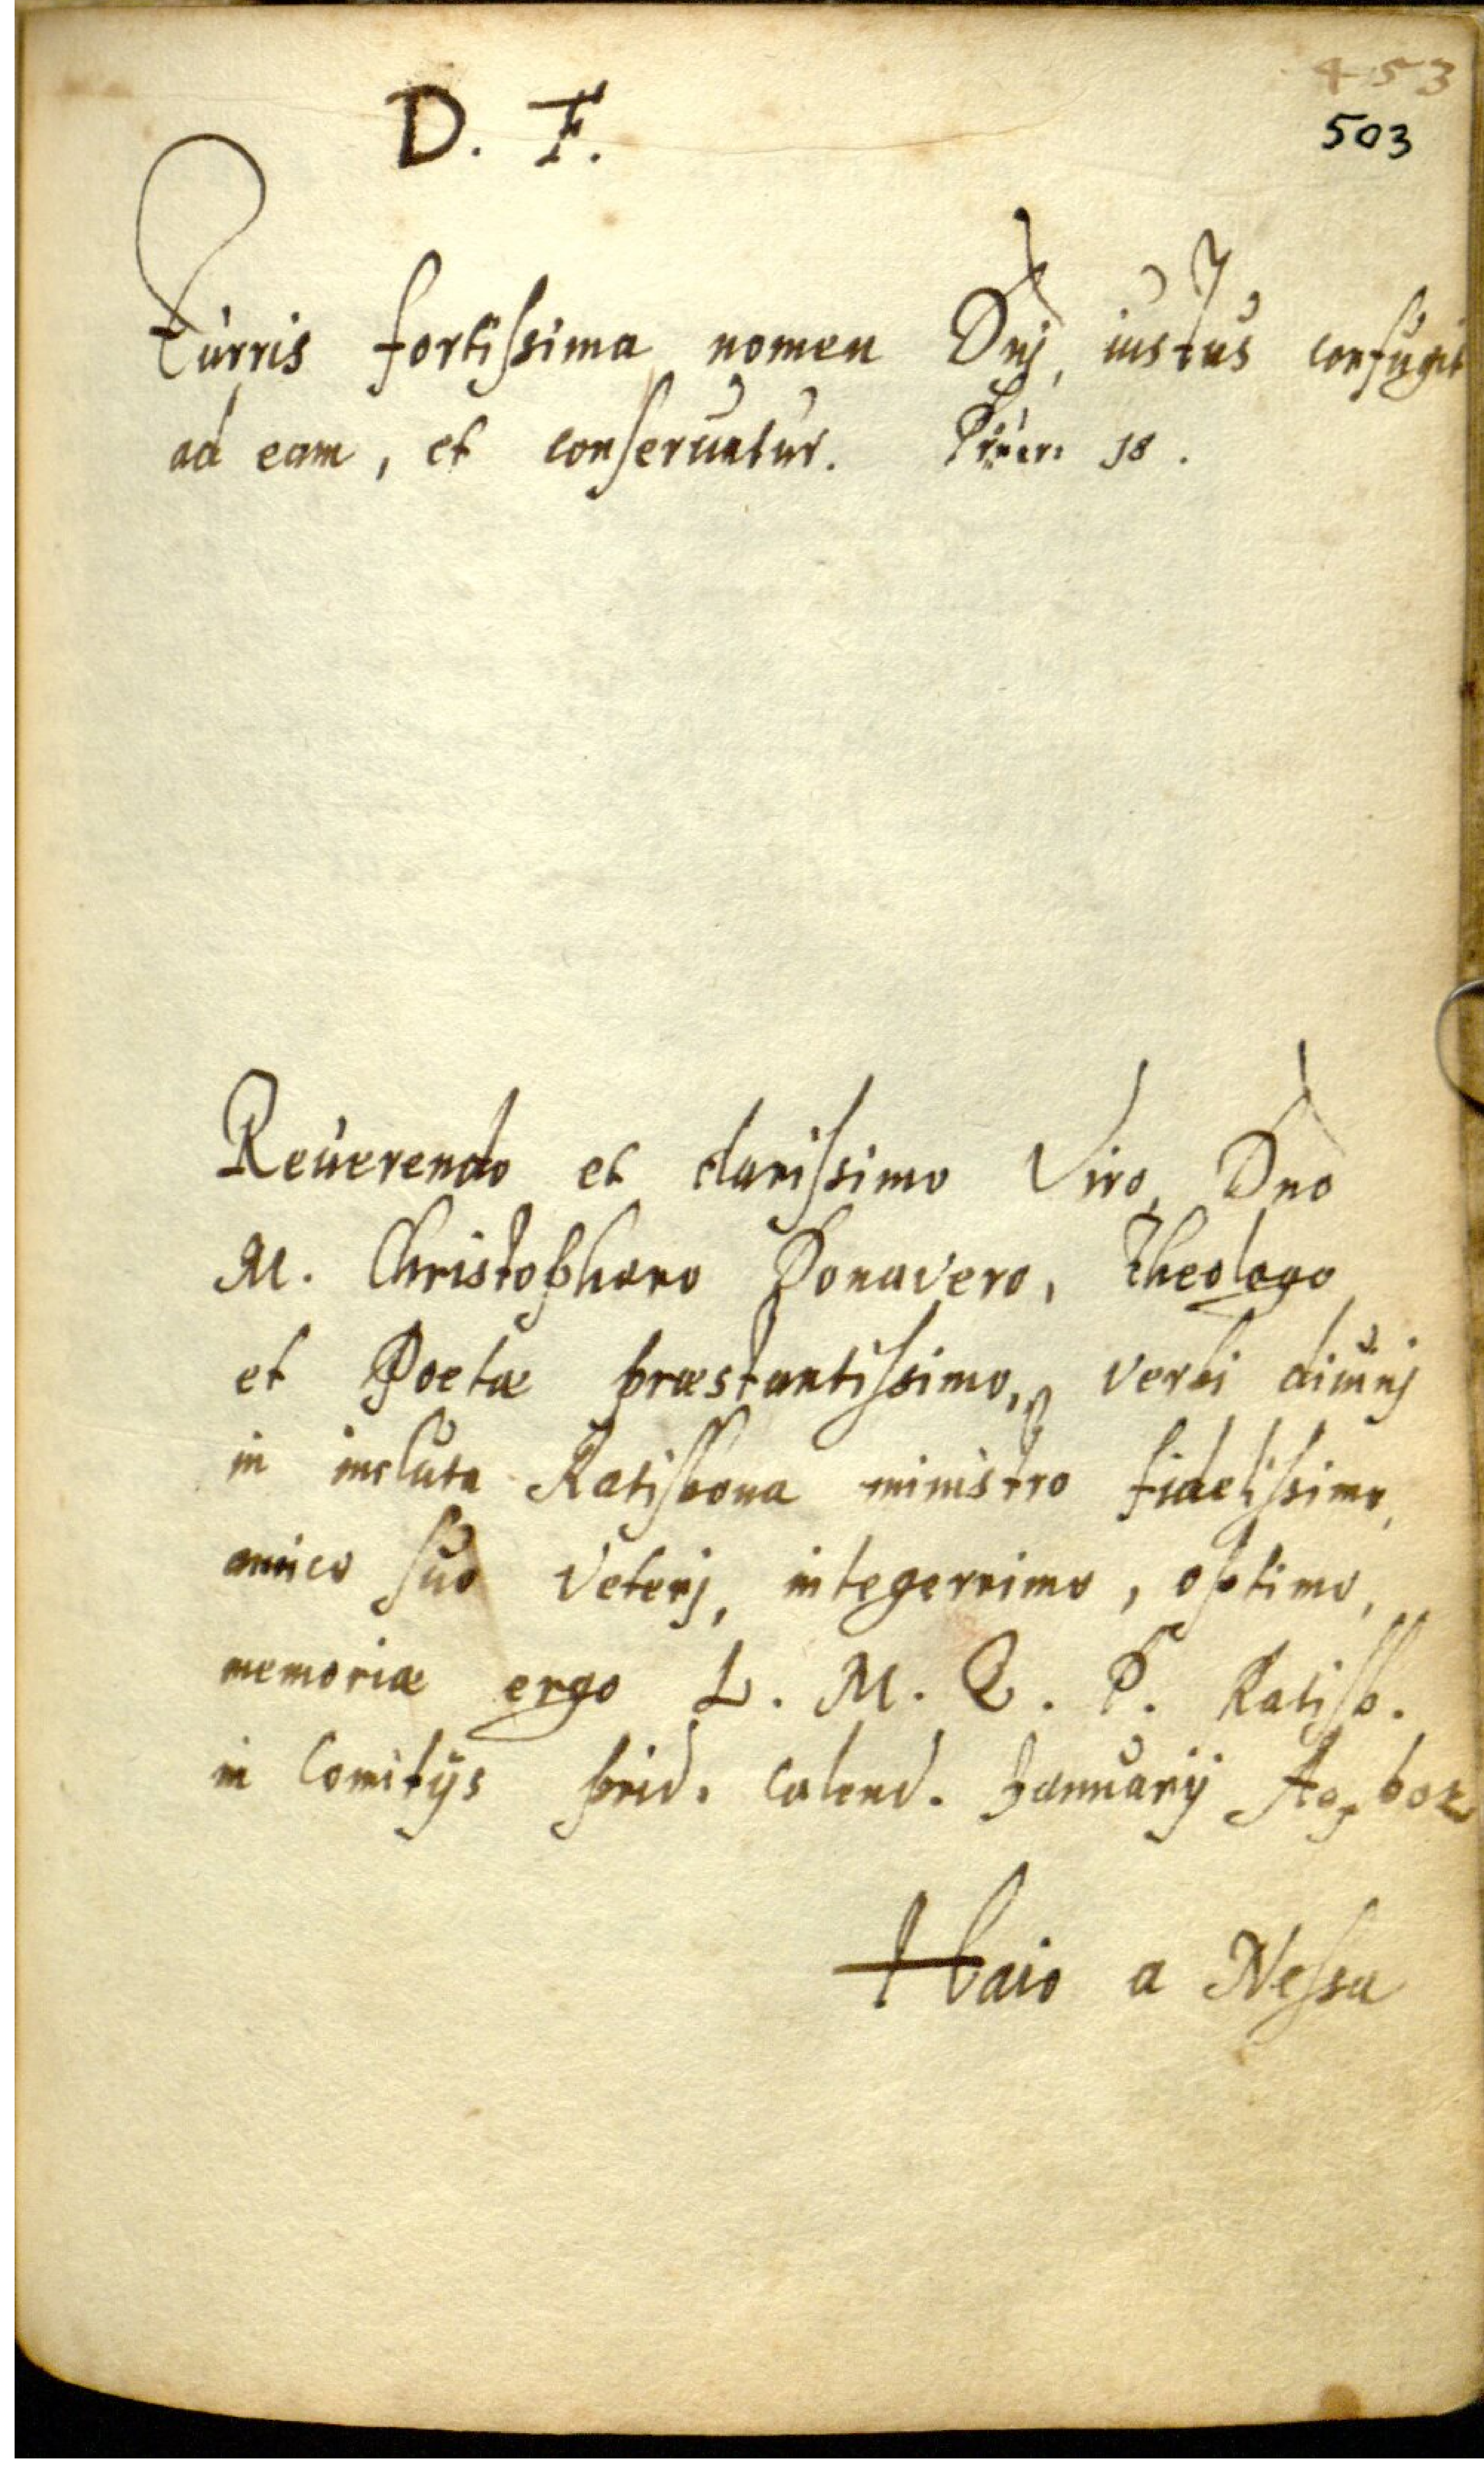 453
D. F.
503
Turris fortissima nomen Dnj, iustus confugit
ad eam, et conseruatur. Prouer: 18.
Reuerendo et clarissimo Viro, Dno
M. Christophoro Donavero, Theologo
et Poetæ præstantissimo, verbi diuinj
in incluta Ratisbona ministro fidelissimo,
amico suo veterj, integerrimo, optimo,
memoriæ ergo L. M. Q. P. Ratisb.
in Comitijs prid. calend. Januarij Ao
Haio a Nessa